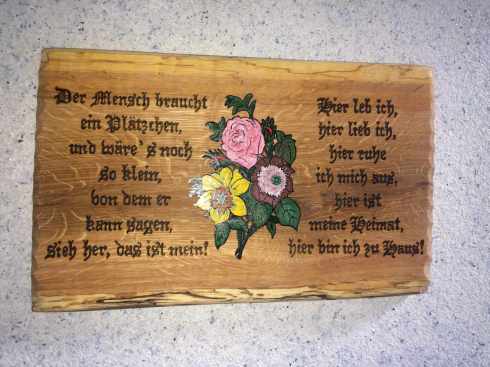 Der Mensch braucht
ein Plätzchen,
und wäre's noch
so klein,
von dem er
kann sagen,
sieh her, das ist mein!
Hier leb ich,
hier lieb ich,
hier ruhe
ich mich aus,
hier ist
meine Heimat,
hier bin ich zu Haus!